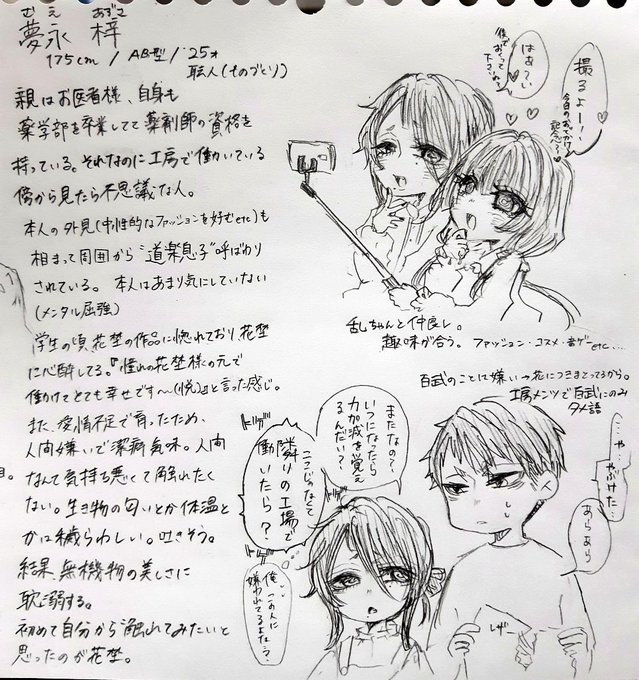 むえ あずさ
夢永 梓
175cm / AB型 / 25才
職人(ものづくり)
親はお医者様、自身も
薬学部を卒業してて薬剤師の資格を
持っている。それなのに工房で働いている
傍から見たら不思議な人。
本人の外見(中性的なファッションを好むetc)も
相まって周囲から“道楽息子”呼ばわり
されている。本人はあまり気にしていない
(メンタル屈強)
学生の頃、花埜の作品に惚れており、花埜
に心酔してる。『憧れの花埜様の元で
働けてとても幸せです〜(悦)』と言った感じ。
また、愛情不足で育ったため、
人間嫌いで潔癖気味。人間
なんて気持ち悪くて触れたく
ない。生き物の匂いとか体温と
かは穢らわしい。吐きそう。
結果、無機物の美しさに
耽溺する。
初めて自分から触れてみたいと
思ったのが花埜。
はぁーい
後でおくって下さいね〜
撮るよー!!
今日のおでかけ記念〜
乱ちゃんと仲良し。
趣味が合う。ファッション・コスメ・音ゲーetc...
百武のことは嫌い。花につきまとってるから。
工房メンツで百武にのみ
タメ語
またなの?
いつになったら
力加減を覚え
るんだい?
ここじゃなくて
隣りの工場で
働いたら?
トゲ トゲ
トゲ トゲ
俺…この人に
嫌われてるよな…?
…や…
やぶけた…
あらあら
レザー